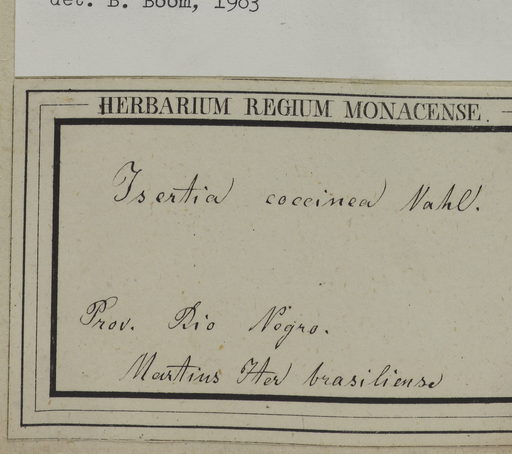 det. B. Boom, 1983
HERBARIUM REGIUM MONACENSE.
Isertia coccinea Vahl.
Prov. Rio Negro.
Martius Iter brasiliense